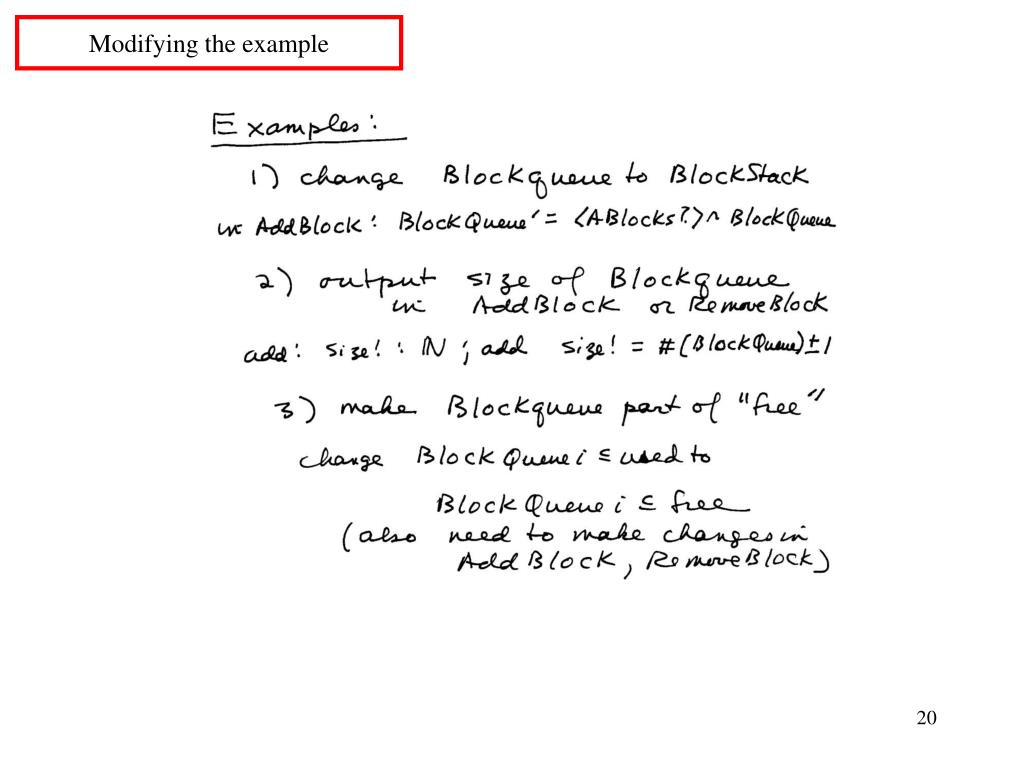 Modifying the example
Examples:
1) change Blockqueue to BlockStack
in AddBlock: BlockQueue' = <ABlocks?>^ BlockQueue
2) output size of Blockqueue
in AddBlock or RemoveBlock
add: size! : ℕ ; add size! = #(BlockQueue)±1
3) make Blockqueue part of "free"
change BlockQueue i ⊆ used to
BlockQueue i ⊆ free
(also need to make changes in
AddBlock, RemoveBlock)
20